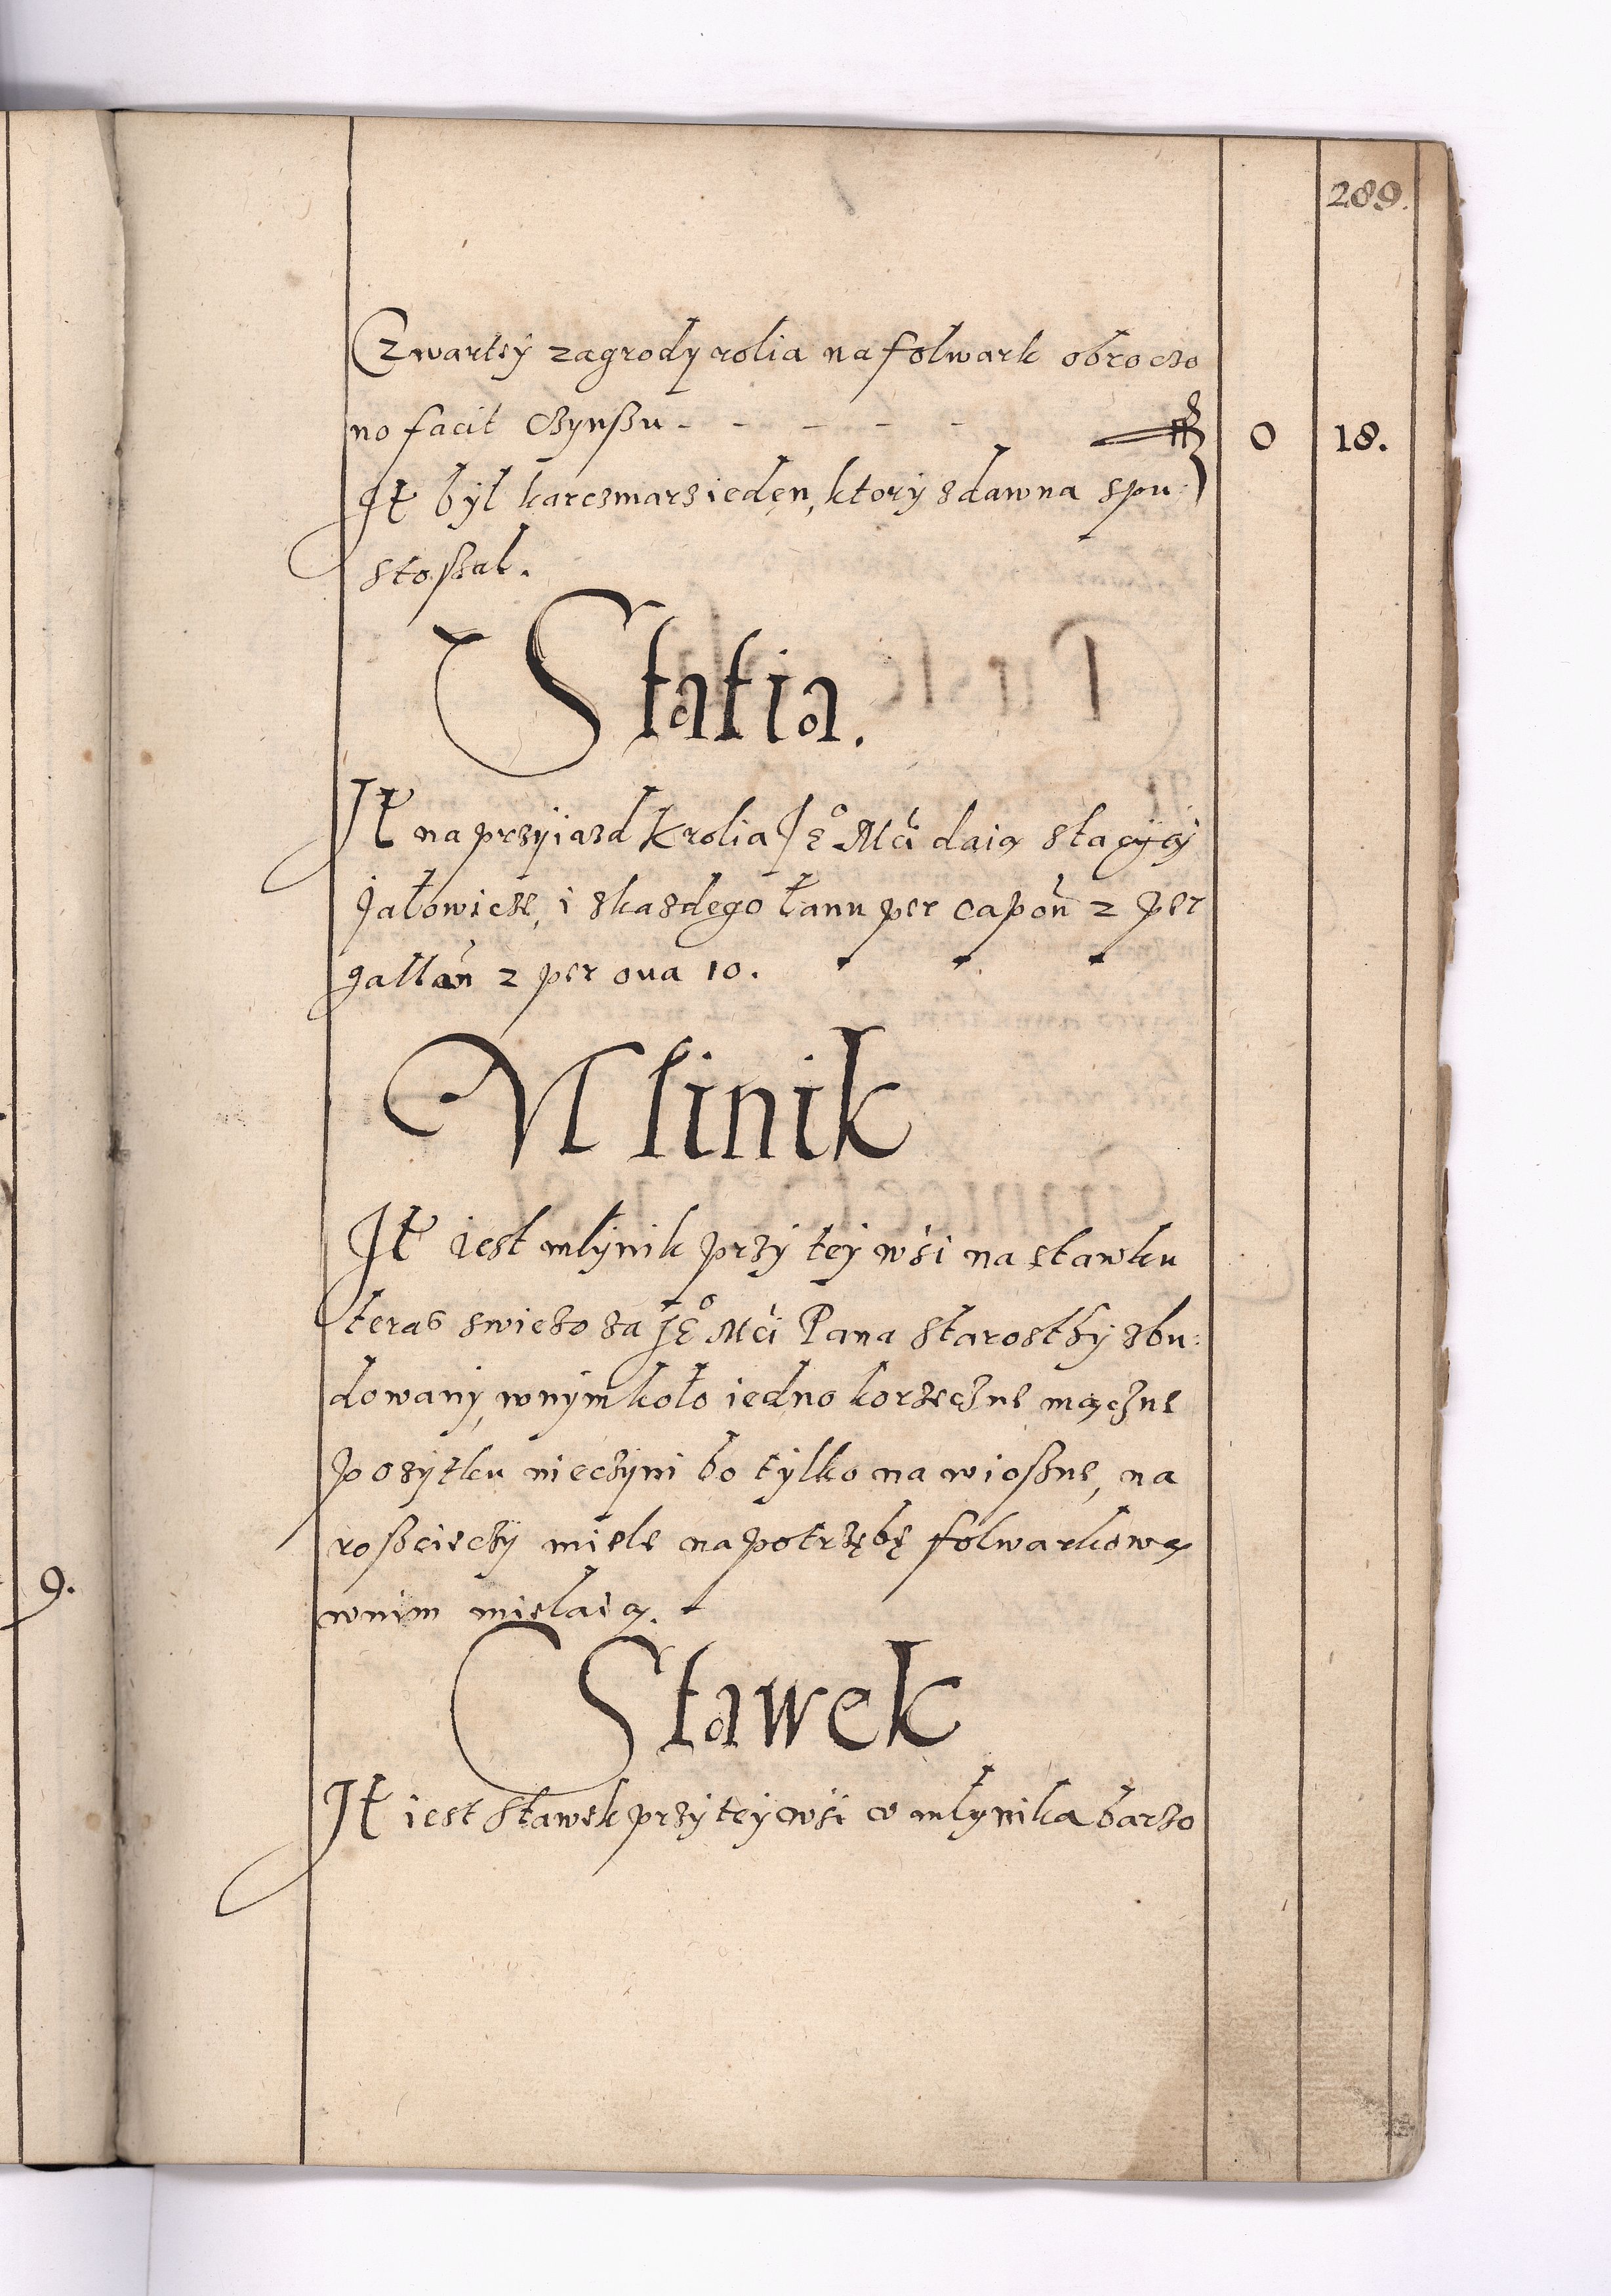 289.
Czwartej zagrody rolia na folwark obroczo
no facit Czynßu - - - - - 0 18.
It był karczmarz ieden, ktory zdawna spu:
stoßał.
Statia.
It na przyiazd Krolia Je° Mći daią stacyią
Jałowicze, i zkazdego łanu per capon 2 per
gallan 2 per oua 10.
Mlinik
It iest młynik przy tej wśi na stawku
teras swiezo za Je° Mći Pana Starosthy zbu:
dowany, wnym koło iedno korzeczne mączne
pozytku nieczyni bo tylko na wioßne, na
roßcieczy miele na potrzębę folwarkową
wnim mielaią.
Stawek
It iest Stawek przy tey wśi v młynika barzo
9.